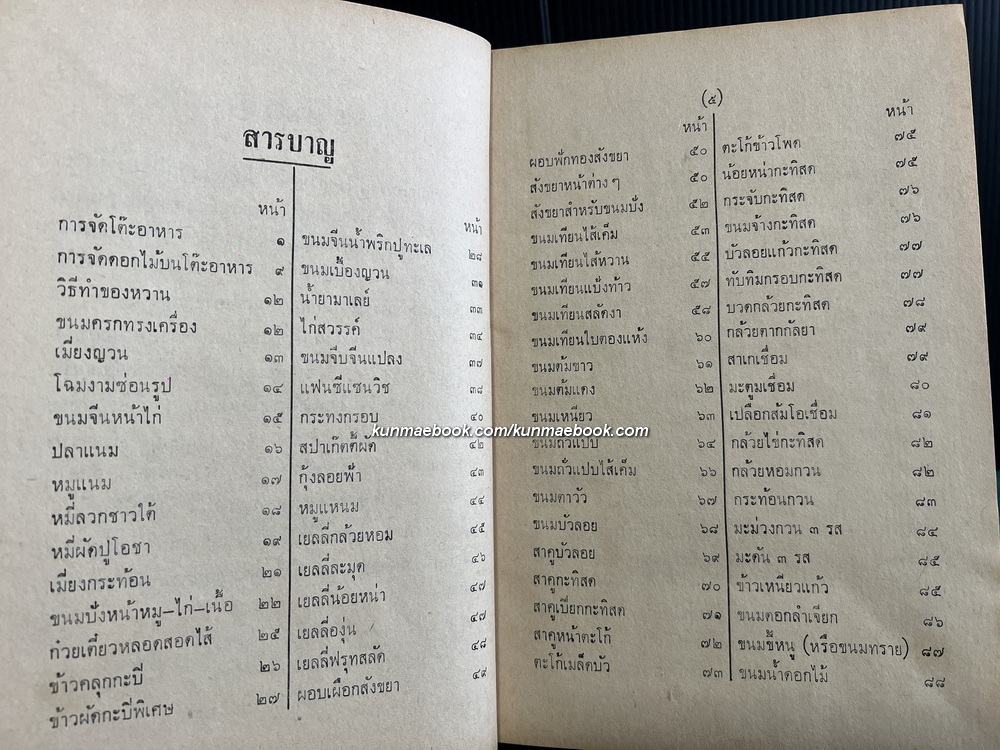 สารบาญ
หน้า
การจัดโต๊ะอาหาร ๑
การจัดดอกไม้บนโต๊ะอาหาร ๙
วิธีทำของหวาน ๑๒
ขนมครกทรงเครื่อง ๑๒
เมี่ยงญวน ๑๓
โฉมงามซ่อนรูป ๑๔
ขนมจีนหน้าไก่ ๑๕
ปลาแนม ๑๖
หมูแนม ๑๗
หมี่ลวกชาวใต้ ๑๘
หมี่ผัดปูโอชา ๑๙
เมี่ยงกระท้อน ๒๑
ขนมปังหน้าหมู–ไก่–เนื้อ ๒๒
ก๋วยเตี๋ยวหลอดสอดไส้ ๒๕
ข้าวคลุกกะปิ ๒๖
ข้าวผัดกะปิพิเศษ ๒๗
หน้า
ขนมจีนน้ำพริกปูทะเล ๒๘
ขนมเบื้องญวน ๓๑
น้ำยามาเลย์ ๓๓
ไก่สวรรค์ ๓๔
ขนมจีบจีนแปลง ๓๗
แฟนซีแซนวิช ๓๘
กระทงกรอบ ๔๐
สปาเก๊ตตี้ผัด ๔๒
กุ้งลอยฟ้า ๔๓
หมูแหนม ๔๔
เยลลี่กล้วยหอม ๔๕
เยลลี่ละมุด ๔๖
เยลลี่น้อยหน่า ๔๗
เยลลี่องุ่น ๔๗
เยลลี่ฟรุทสลัด ๔๘
ผอบเผือกสังขยา ๔๙
(๕)
หน้า
ผอบฟักทองสังขยา ๕๐
สังขยาหน้าต่าง ๆ ๕๐
สังขยาสำหรับขนมปัง ๕๒
ขนมเทียนไส้เค็ม ๕๓
ขนมเทียนไส้หวาน ๕๕
ขนมเทียนแป้งท้าว ๕๗
ขนมเทียนสลัดงา ๕๘
ขนมเทียนใบตองแห้ง ๖๐
ขนมต้มขาว ๖๑
ขนมต้มแดง ๖๒
ขนมเหนียว ๖๓
ขนมถั่วแปบ ๖๔
ขนมถั่วแปบไส้เค็ม ๖๖
ขนมตาวัว ๖๗
ขนมบัวลอย ๖๘
สาคูบัวลอย ๖๙
สาคูกะทิสด ๗๐
สาคูเปียกกะทิสด ๗๑
สาคูหน้าตะโก้ ๗๒
ตะโก้เมล็ดบัว ๗๓
หน้า
ตะโก้ข้าวโพด ๗๕
น้อยหน่ากะทิสด ๗๕
กระจับกะทิสด ๗๖
ขนมจ้างกะทิสด ๗๖
บัวลอยแก้วกะทิสด ๗๗
ทับทิมกรอบกะทิสด ๗๗
บวดกล้วยกะทิสด ๗๘
กล้วยตากกัลยา ๗๙
สาเกเชื่อม ๗๙
มะตูมเชื่อม ๘๐
เปลือกส้มโอเชื่อม ๘๑
กล้วยไข่กะทิสด ๘๒
กล้วยหอมกวน ๘๒
กระท้อนกวน ๘๓
มะม่วงกวน ๓ รส ๘๔
มะดัน ๓ รส ๘๕
ข้าวเหนียวแก้ว ๘๕
ขนมดอกลำเจียก ๘๖
ขนมขี้หนู (หรือขนมทราย) ๘๗
ขนมน้ำดอกไม้ ๘๘
kunmaebook.com/kunmaebook.com